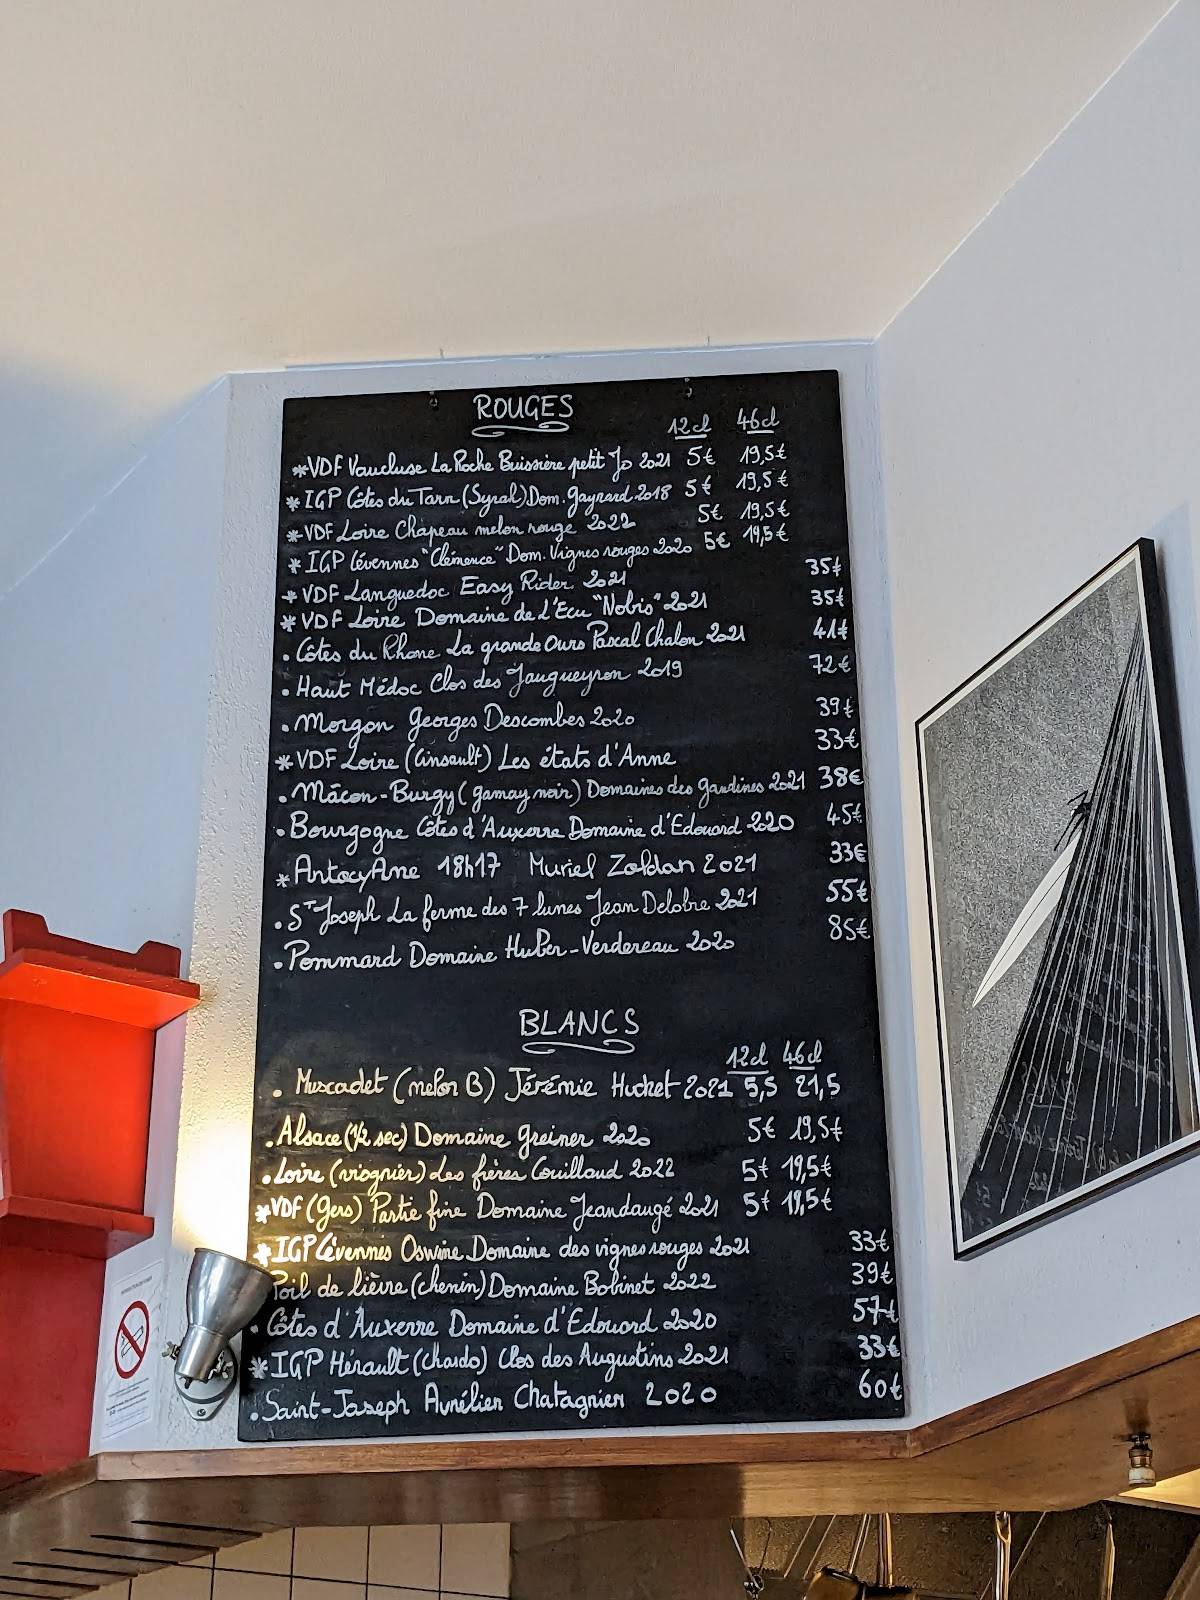 ROUGES
12cl 46cl
*VDF Vaucluse La Roche Buissière petit Jo 2021 5€ 19,5€
*IGP Côtes du Tarn (Syrah) Dom. Gayrard 2018 5€ 19,5€
*VDF Loire Chapeau melon rouge 2022 5€ 19,5€
*IGP Cévennes "Clémence" Dom. Vignes rouges 2020 5€ 19,5€
*VDF Languedoc Easy Rider 2021 35€
*VDF Loire Domaine de L'Ecu "Nobis" 2021 35€
. Côtes du Rhone La grande Ours Pascal Chalon 2021 41€
. Haut Médoc Clos des Jaugueyron 2019 72€
. Morgon Georges Descombes 2020 39€
*VDF Loire (Cinsault) Les états d'Anne 33€
. Mâcon-Burgy (gamay noir) Domaines des Gandines 2021 38€
. Bourgogne Côtes d'Auxerre Domaine d'Edouard 2020 45€
*AntocyAne 18h17 Muriel Zoldan 2021 33€
. ST Joseph La ferme des 7 lunes Jean Delobre 2021 55€
. Pommard Domaine Huber-Verdereau 2020 85€
BLANCS
12cl 46cl
. Muscadet (melon B) Jérémie Huchet 2021 5,5 21,5
. Alsace (1/2 sec) Domaine Greiner 2020 5€ 19,5€
. Loire (viognier) Les frères Couillaud 2022 5€ 19,5€
*VDF (Gers) Partie fine Domaine Jeandaugé 2021 5€ 19,5€
*IGP Cévennes Oswine Domaine des vignes rouges 2021 33€
Poil de lièvre (chenin) Domaine Bobinet 2022 39€
. Côtes d'Auxerre Domaine d'Edouard 2020 57€
*IGP Hérault (chardo) Clos des Augustins 2021 33€
. Saint-Joseph Aurélien Chatagnier 2020 60€